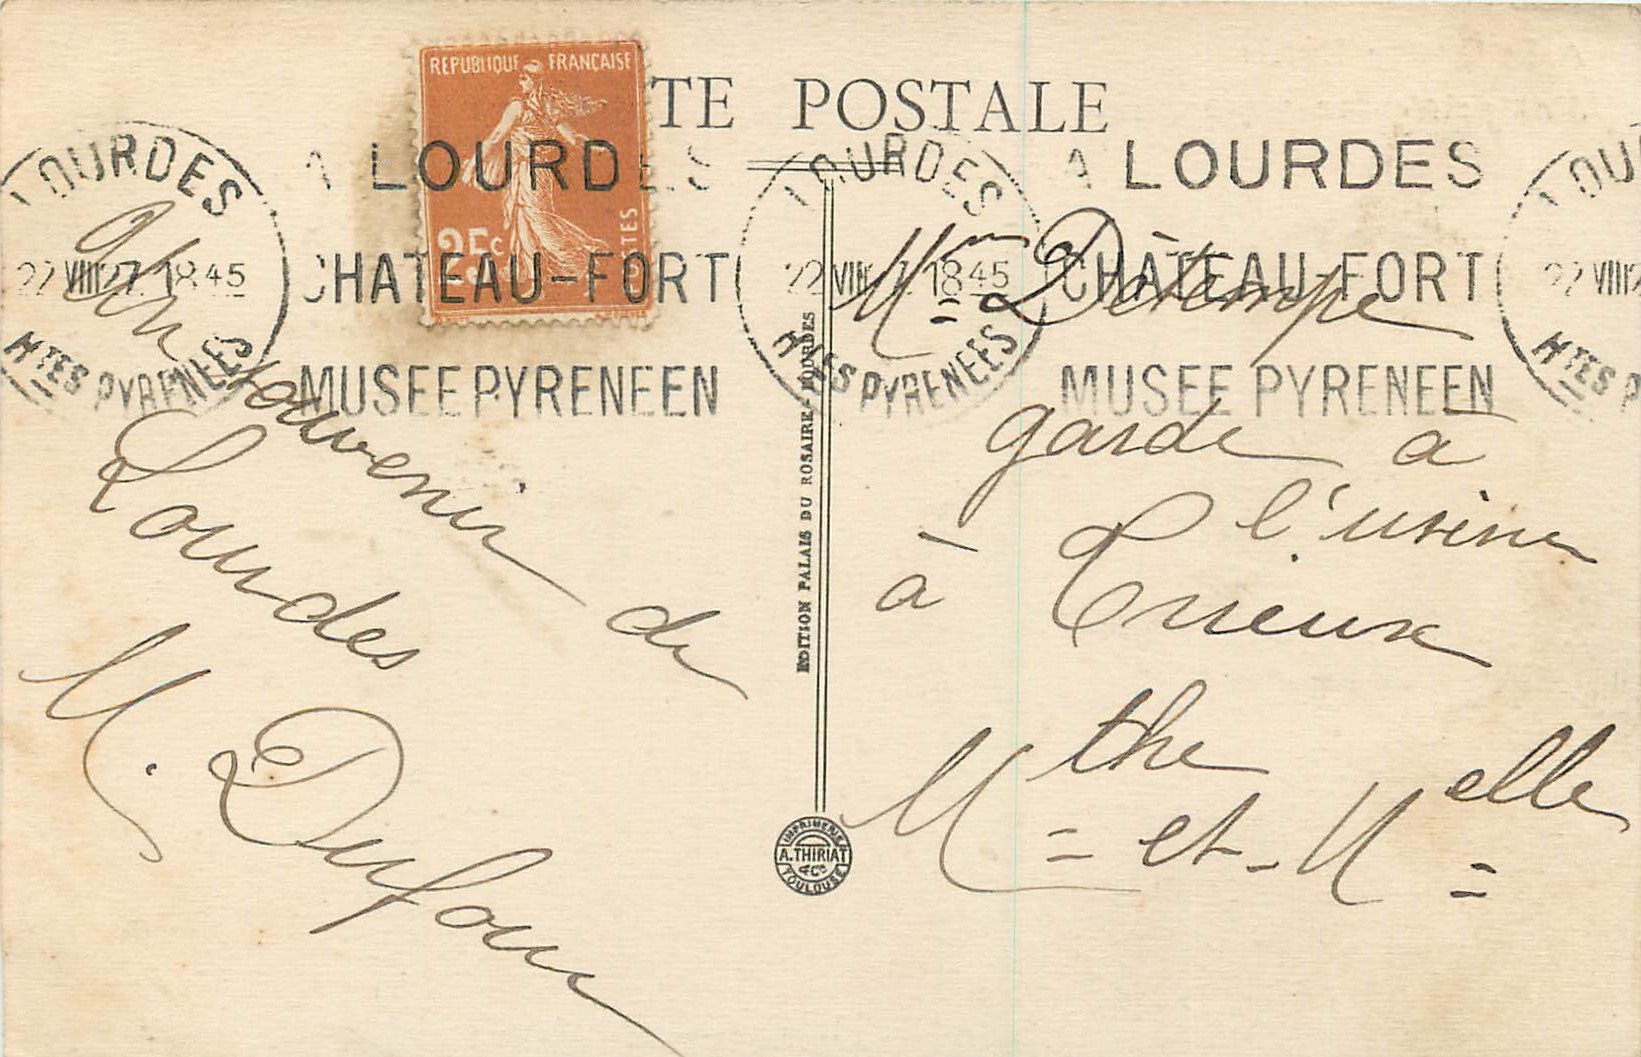 CARTE POSTALE
REPUBLIQUE FRANÇAISE
25c
POSTES
LOURDES
22 VIII 27 18 45
HTES PYRENEES
A LOURDES
CHATEAU-FORT
MUSEE PYRENEEN
LOURDES
22 VIII 27 18 45
HTES PYRENEES
A LOURDES
CHATEAU-FORT
MUSEE PYRENEEN
LOU
22 VIII 2
HTES P
Un
Souvenir de
Lourdes
M. Dufour
EDITION PALAIS DU ROSAIRE - LOURDES
IMPRIMERIE
A. THIRIAT
& Cie
TOULOUSE
Mme Detempe
garde à
l'usine
à Trieux
Mthe et Melle